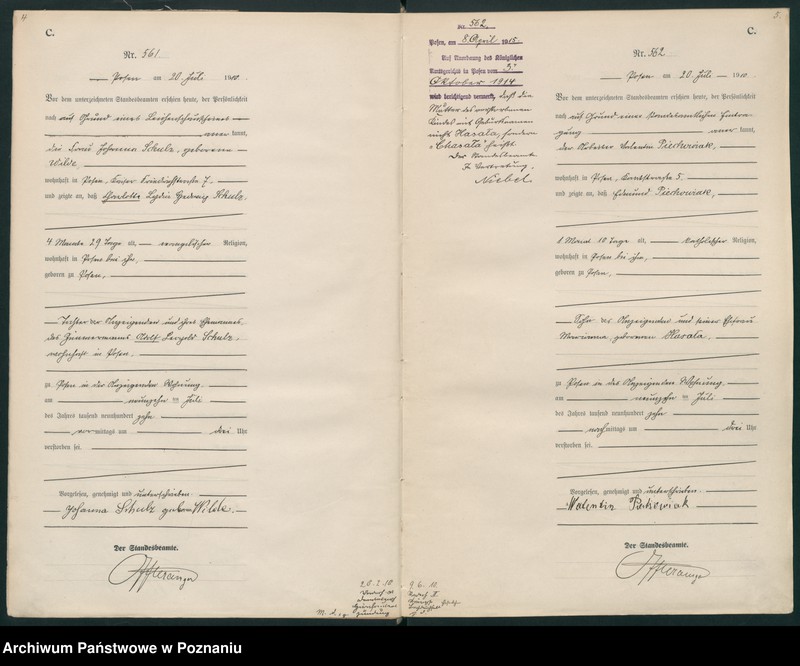 4
C.
Nr. 561
Posen am 20 Juli 1910.
Vor dem unterzeichneten Standesbeamten erschien heute, der Persönlichkeit
nach auf Grund eines
kannt,
die Frau Johanna Schulz, geborene
Wilde,
wohnhaft in Posen, Kaiser Friedrichstraße 7.
und zeigte an, daß Charlotte Lydia Hedwig Schulz,
4 Monate 29 Tage alt, evangelischer Religion,
wohnhaft in Posen bei ihr,
geboren zu Posen,
Tochter der Anzeigenden und ihres Ehemannes,
des Zimmermanns Adolf Leopold Schulz,
wohnhaft in Posen.
zu Posen in der Anzeigenden Wohnung
am neunzehnten Juli
des Jahres tausend neunhundert zehn
vormittags um drei Uhr
verstorben sei.
Vorgelesen, genehmigt und unterschrieben
Johanna Schulz geborne Wilde.
Der Standesbeamte.
20.2.10
5.
C.
Nr. 562
Posen am 20 Juli 1910
Vor dem unterzeichneten Standesbeamten erschien heute, der Persönlichkeit
nach auf Grund einer standesamtlichen Eintra-
gung
kannt,
der Arbeiter Valentin Piechowiak,
wohnhaft in Posen, 5.
und zeigte an, daß Edmund Piechowiak,
1 Monat 10 Tage alt, katholischer Religion,
wohnhaft in Posen bei ihm,
geboren zu Posen,
Sohn des Anzeigenden und seiner Ehefrau
Marianna, geborenen Hasala.
zu Posen in des Anzeigenden Wohnung
am neunzehnten Juli
des Jahres tausend neunhundert zehn
nachmittags um drei Uhr
verstorben sei.
Vorgelesen, genehmigt und unterschrieben
Walentin Piechowiak
Der Standesbeamte.
9.6.10
zu 562.
Posen, am 8 April 1915.
Auf Anordnung des Königlichen
Amtsgerichts in Posen vom 9ten
Oktober 1914
wird berichtigend vermerkt, daß die
Mutter des verstorbenen
Kindes mit Geburtsnamen
nicht Hasala, sondern
„Chasala" heißt.
Der Standesbeamte
In Vertretung.
Niebel
Archiwum Państwowe w Poznaniu